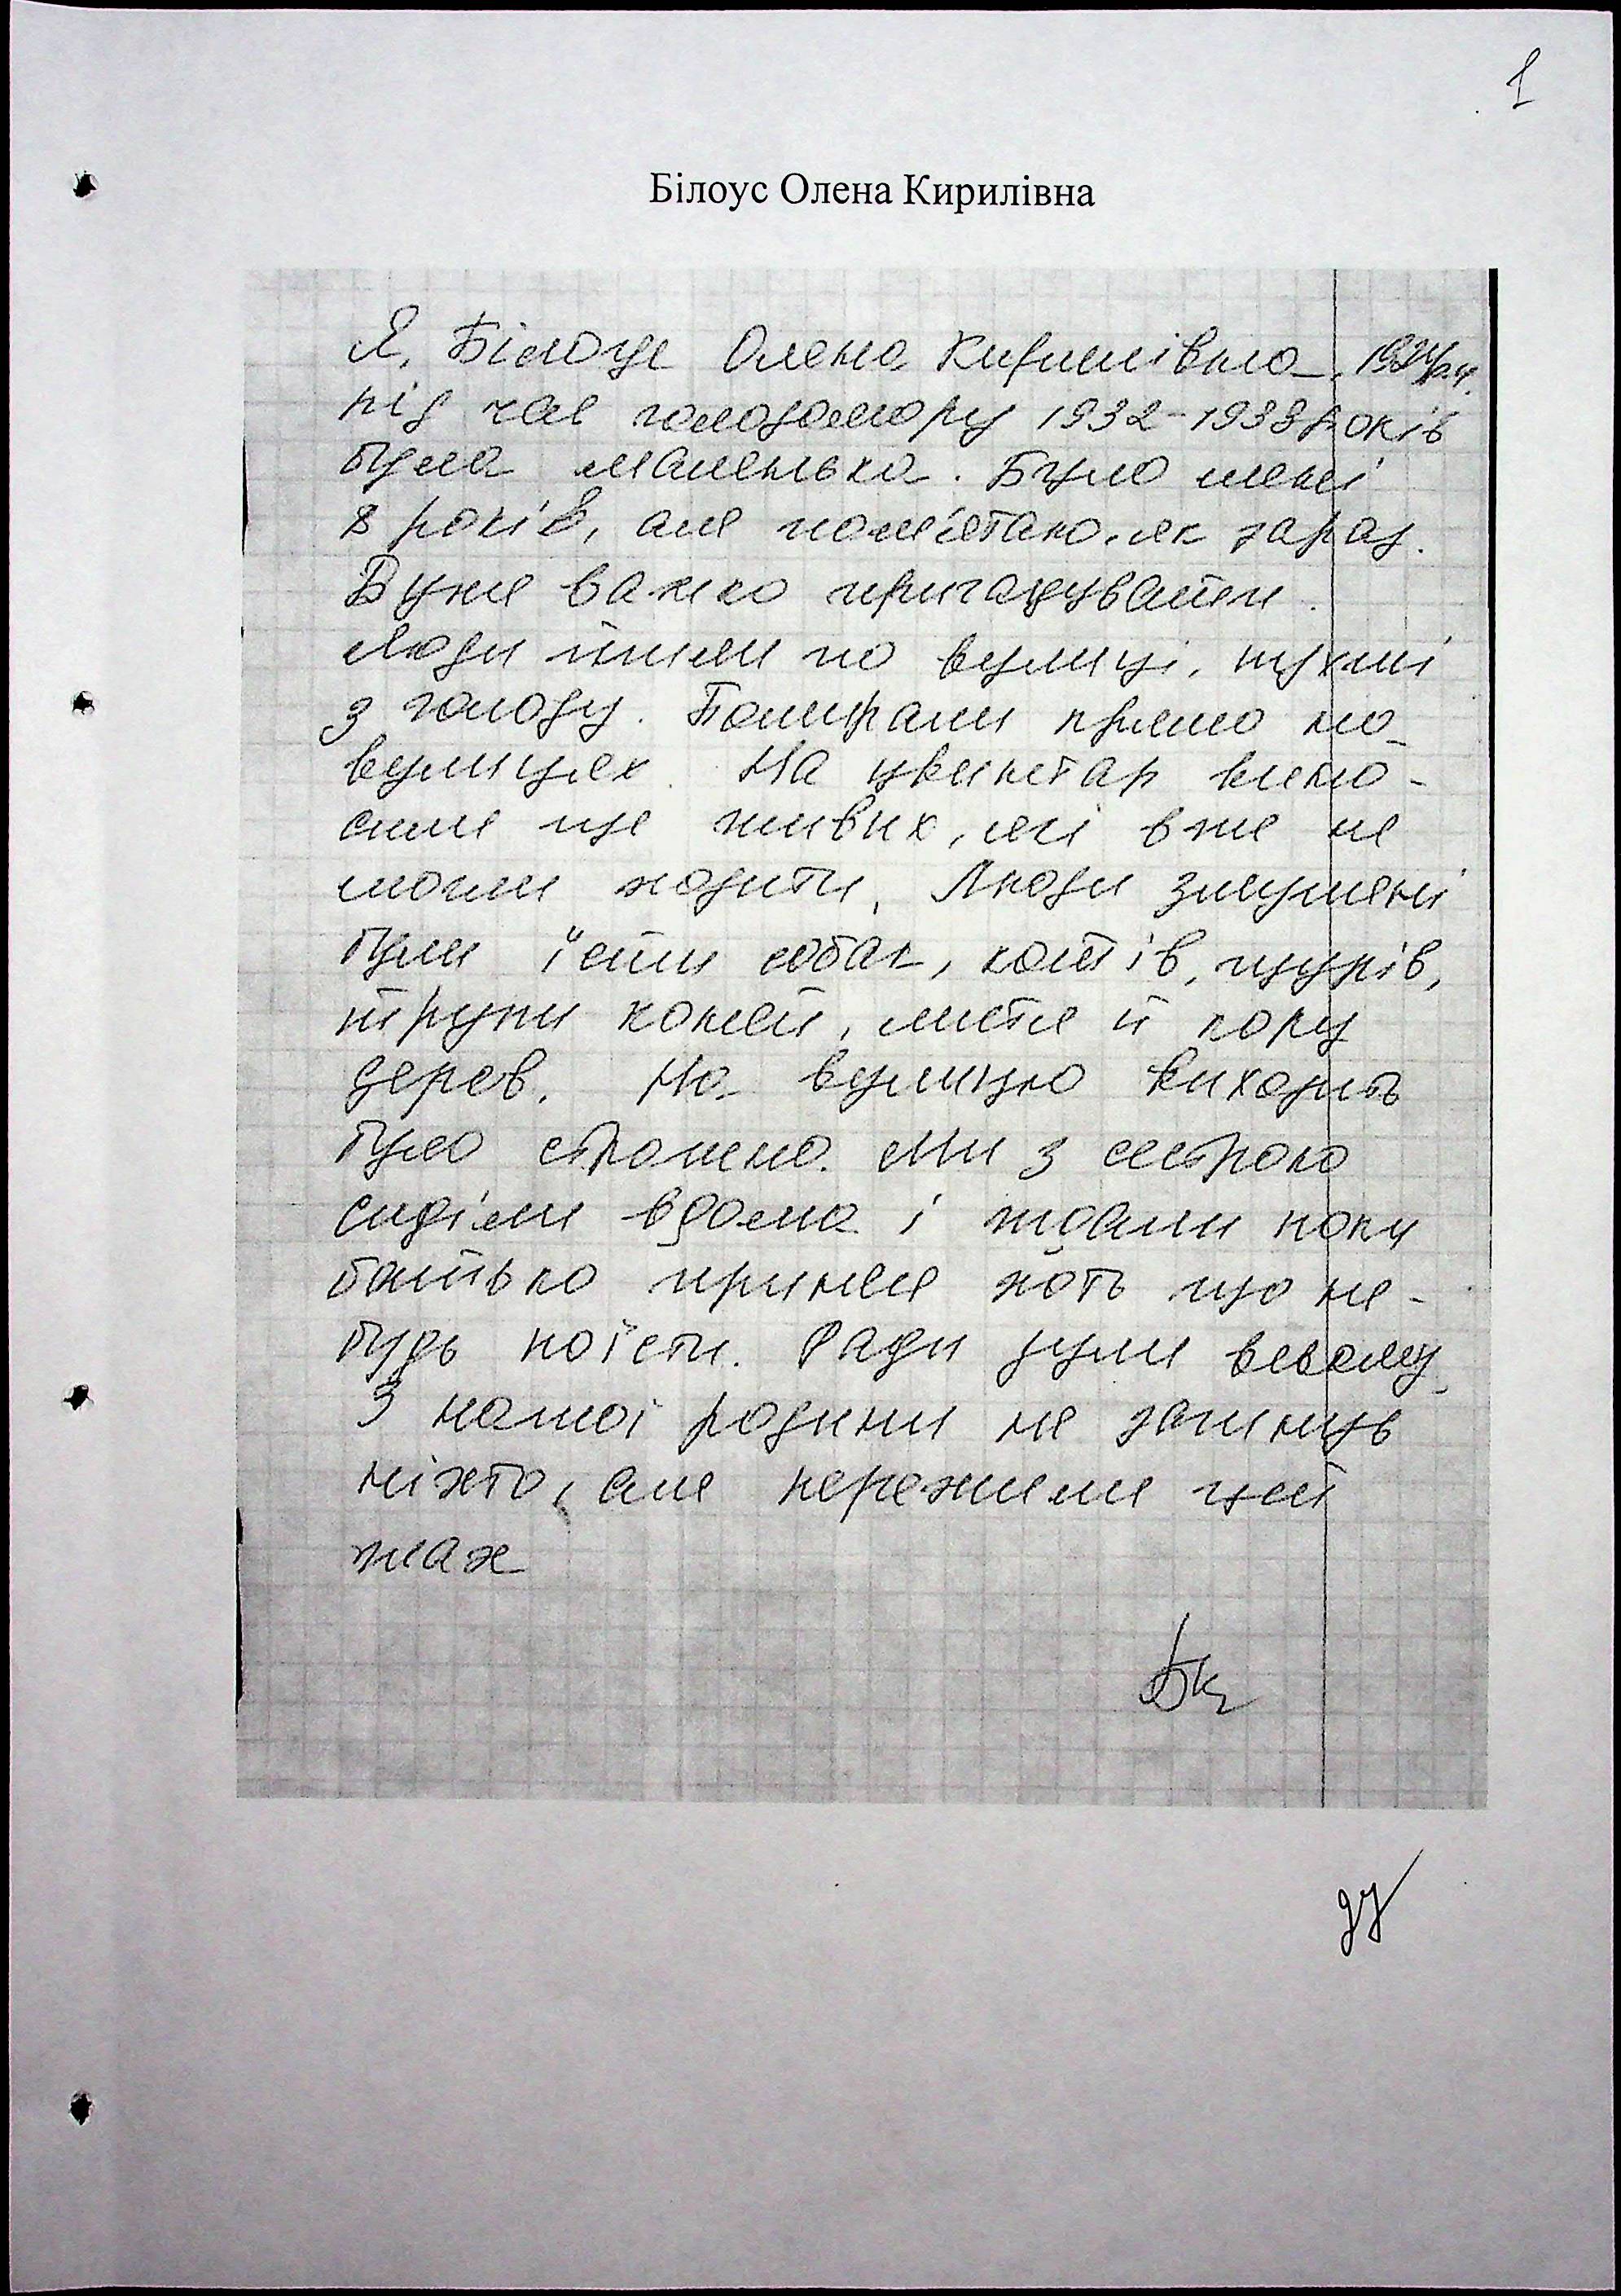 1
Білоус Олена Кирилівна
Я, Білоус Олена Кирилівна, 1924р.н.
під час голодомору 1932-1933 років
була маленька. Було мені
8 років, але пам'ятаю, як зараз.
Дуже важко пригадувати.
Люди йшли по вулиці, пухлі
з голоду. Помирали прямо на
вулицях. На цвинтар вино-
сили ще живих, які вже не
могли ходити. Люди змушені
були їсти собак, котів, щурів,
трупи коней, листя й кору
дерев. На вулицю виходить
було страшно. Ми з сестрою
сиділи вдома і ждали поки
батько принесе хоть що не-
будь поїсти. Ради були всьому.
З нашої родини не загинув
ніхто, але пережили цей
жах
Бк